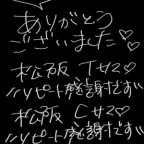 ありがとう
ございました♡♡
松阪 Tサン♡
リピート感謝です
松阪 Cサン♡
リピート感謝です